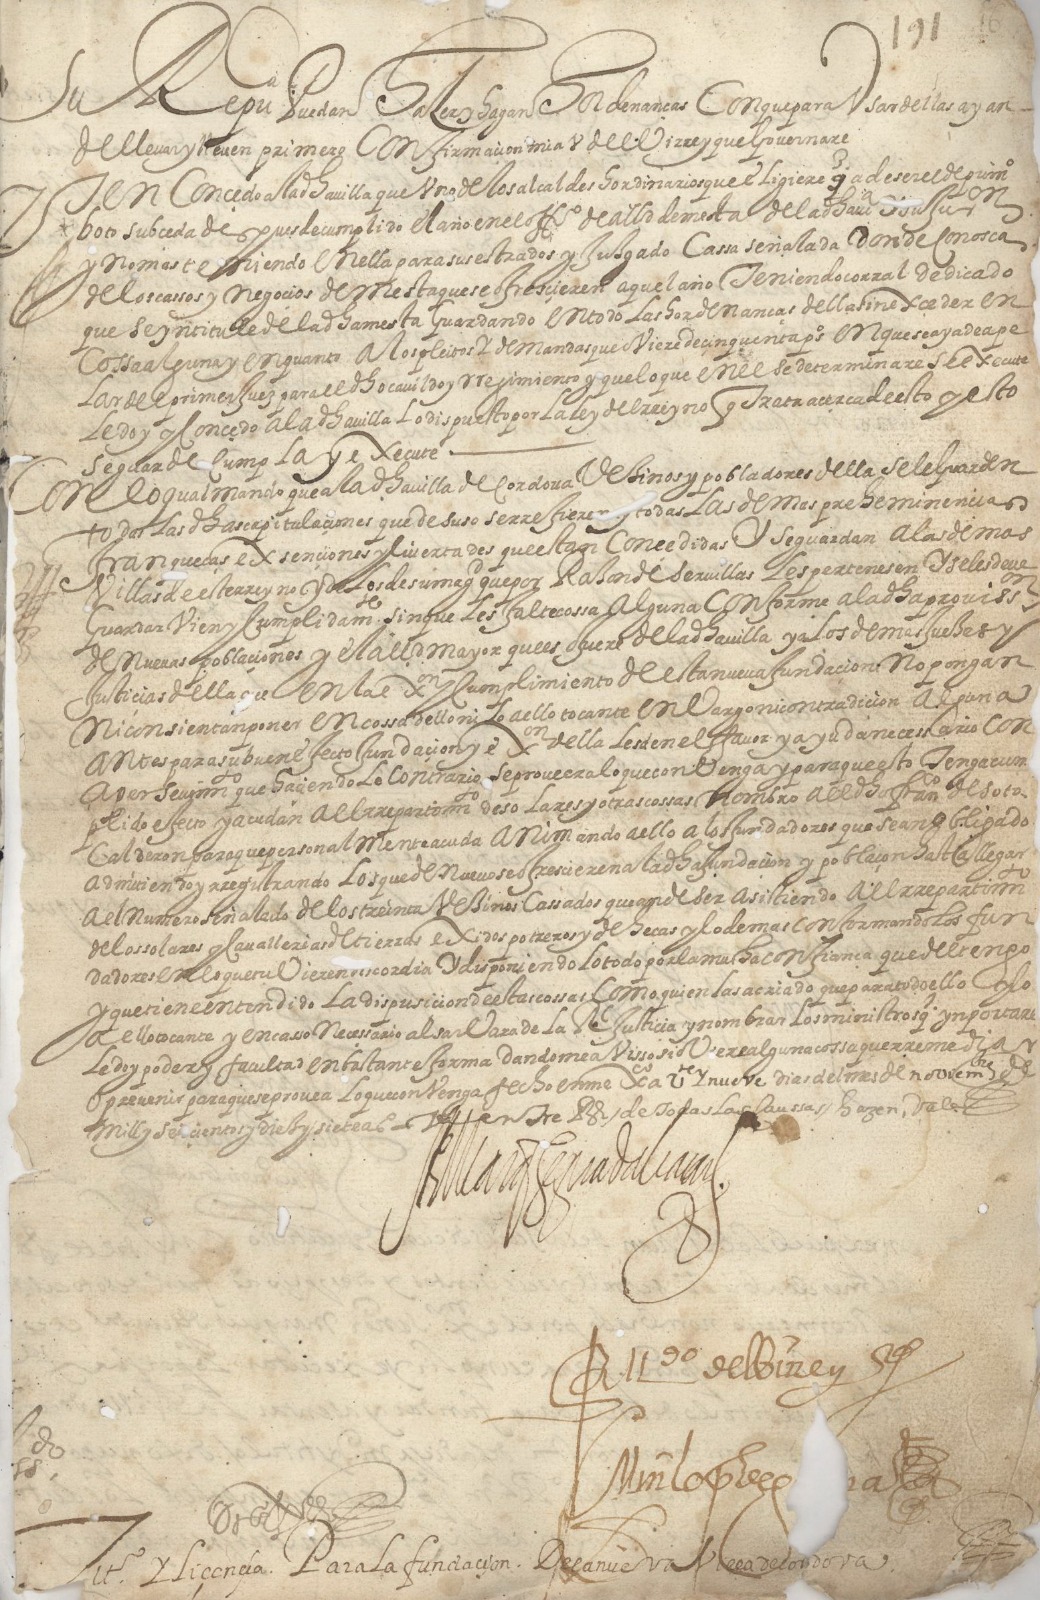 191 16
Su Repu^a Puedan Hazer y hagan Hordenanças Con que para Vsar dellas ayan
de llevar y lleven primero Confirmacion mia V del Virrey que Governare
Yten Concedo a la d^ha villa que Vno de los alcaldes hordinarios que eligiere q a de ser el de prim^o
boto subceda despues de cumplido el año en el off^o de all^de de mesta de la d^ha villa y su jur^on
y no mas teniendo en ella para sus estrados y juzgado Cassa señalada donde Conosca
de los cassos y negocios de mesta que se ofrescieren aquel año Teniendo corral dedicado
que se yntitule de la d^ha mesta Guardando en todo las hordenanças della sin exceder en
Cossa alguna y en quanto a los pleitos V demandas que Viere de cinquenta p^os en que se aya de ape
lar del primer Juez para el d^ho cavildo y rregimiento y que lo que en el se determinare se execute
le doy y Concedo a la d^ha villa lo dispuesto por la ley del rreyno q Trata acerca de esto y esto
se guarde Cumpla y execute
Con lo qual mando que a la d^ha villa de Cordova Vezinos y pobladores della se le guarden
todas las d^has capitulaciones que de suso se rrefieren y todas las demas preheminencias
franqueças exsenciones y livertades que estan Concedidas V se guardan a las demas
Villas de este rreyno y de los de su mag^d que por Razon de ser villas les pertenesen V se les deve
Guardar Vien y Cumplidam^te sin que les falte cossa alguna Conforme a la d^ha provission
de nuevas poblaciones y el all^de mayor que es o fuere de la d^ha villa y a los demas juezes y
justicias della que en la ex^on y Cumplimiento de esta nueva fundacion no pongan
ni consientan poner en cossa dello ni lo a ello tocante enVargo ni contradicion alguna
antes para su buen efecto fundacion y ex^on della les den el favor y ayuda necessario Con
apersevim^to que haziendo lo Contrario se proveera lo que conVenga y para que esto Tenga cum
plido efecto y acudan al rrepartim^to de solares y otras cossas nombro a el d^ho fran^co de soto
Calderon para que personalmente acuda animando a ello a los fundadores que sean obligado
admitiendo y rregistrando los que de nuevo se ofrescieren a la d^ha fundacion y poblaçon hasta llegar
a el numero señalado de los treinta Vezinos Cassados que an de ser asistiendo a el rrepartim^to
de los solares y Cavallerias de tierras exidos potreros y dehezas y lo demas conformando los fun
dadores en lo que tuVieren discordia V disponiendolo todo por la mucha confiança que del tengo
y que tiene entendido la dispusicion de estas cossas Como quien las a criado que para todo ello y lo
a ello tocante y en caso necessario alsar Vara de la R^l Justicia y nombrar los ministros q ynportare
le doy poder y facultad en bastante forma dandome aVisso si oViere alguna cossa que rremediar
o prevenir para que se provea lo que conVenga fecho en mex^co a V^te y nueve dias del mes de noviem^bre de
mill y seiscientos y diez y siete a^os entre R^s y de Todas las Caussas hazen, Vale
El Marq^s de Guadalcaçar
P^r m^do del Virrey
M^in Lopez
Tit^o Y Licencia. Para La fundacion. De la nueva Villa de Cordova.